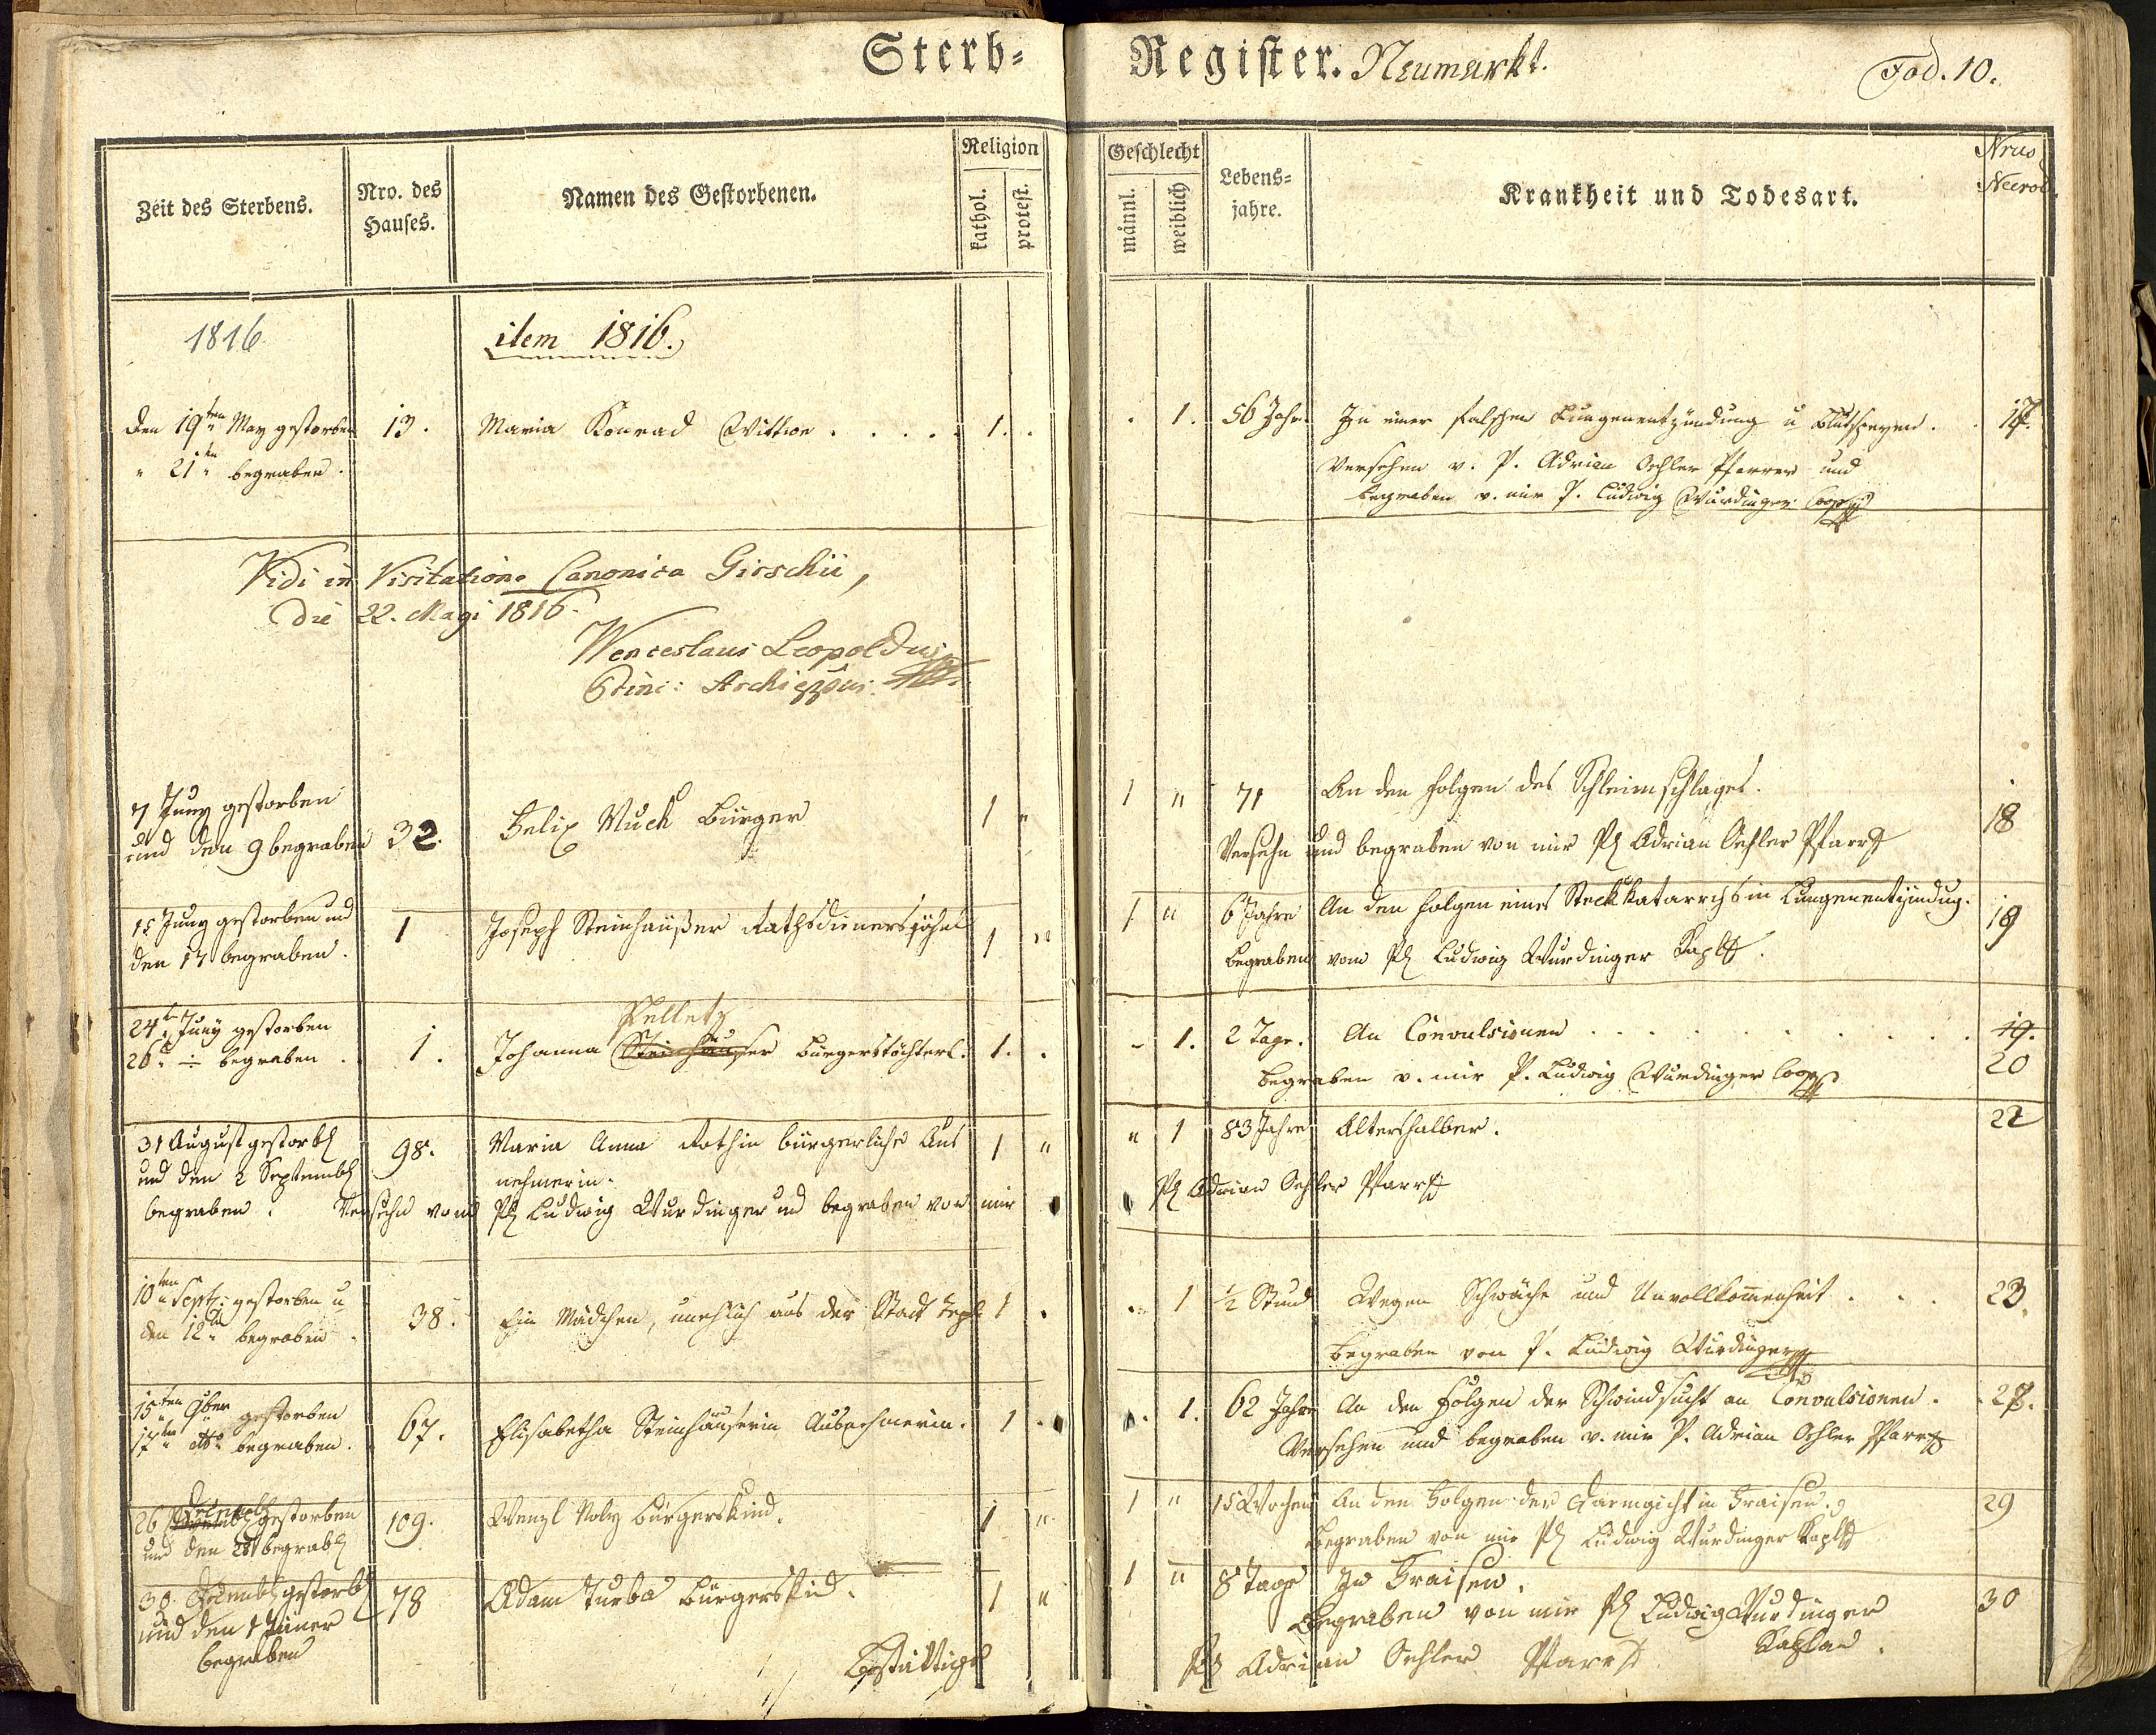 Sterb- Register. Neumarkt. Fod. 10.
Zeit des Sterbens.
Nro. des Hauses.
Namen des Gestorbenen.
Religion
kathol.
protest.
Geschlecht
männl.
weiblich
Lebens-
jahre.
Krankheit und Todesart.
Nrus
1816
item 1816.
den 19ten May gestorben 13. Maria Konrad Wittwe . . . . 1. . . 1. 56 Jahr. In einer falschen Lungenentzündung u Blutspeyen. . 17.
" 21ten begraben.
Versehen v. P. Adrian Oehler Pfarrer und
begraben v. mir P. Ludwig Wurdinger Coop
Vidi in Visitatione Canonica Girschii,
die 22. Maji 1816.
Wenceslaus Leopoldus
7 Juny gestorben
und den 9 begraben 32. Felix Much Bürger 1 " 1 " 71 An den Folgen des Schleimschlages. 18
Versehn und begraben von mir P Adrian Oehler Pfarr
15 Juny gestorben und
den 17 begraben. 1 Joseph Steinhaußer Rathsdienerssöhnl 1 " 1 " 6 Jahre An den Folgen eines Steckkatarrhs in Lungenentzündug. 19
begraben vom P Ludwig Wurdinger Kapl
Pelletz
24t Juny gestorben
26t ÷ begraben . 1. Johanna Steinhauser Bürgerstöchterl. 1. . - 1. 2 Tage. An Convulsionen . . . . . . . . 19.
20
begraben v. mir P. Ludwig Wurdinger Coop
31 August gestorb
und den 2 Septemb
begraben. 98. Maria Anna Rothin bürgerliche Aus
nehmerin. 1 " " 1 83 Jahre Altershalber. 22
Versehn vom P Ludwig Wurdinger und begraben von mir P Adrian Oehler Pfarr
10ten Sept. gestorben u
den 12t begraben . 38. Ein Mädchen, unehlich aus der Stadt Tepl 1 . . 1 1/2 Stund Wegen Schwäche und Unvollkommenheit . . . 23.
begraben von P. Ludwig Wurdinger
15ten 9ber gestorben
17ten dtto begraben. 67. Elisabetha Steinhäuserin Ausnehmerin. 1 . . 1. 62 Jahre An den Folgen der Schwindsucht an Convulsionen. 28.
Versehen und begraben v. mir P. Adrian Oehler Pfarr
26 Decemb gestorben
und den 28 begrab 109. Wenzl Noby Bürgerskind. 1 " 1 " 15 Wochen An den Folgen der Darmgicht in Fraisen. 29
begraben von mir P Ludwig Wurdinger Kapl
30. Decemb gestorb
und den 1 Jäner
begraben 78 Adam Turba Bürgerskind. 1 " 1 " 8 Tage In Fraisen. 30
Begraben von mir P Ludwig Wurdinger
Kaplan.
Bestättigt P Adrian Oehler Pfarr